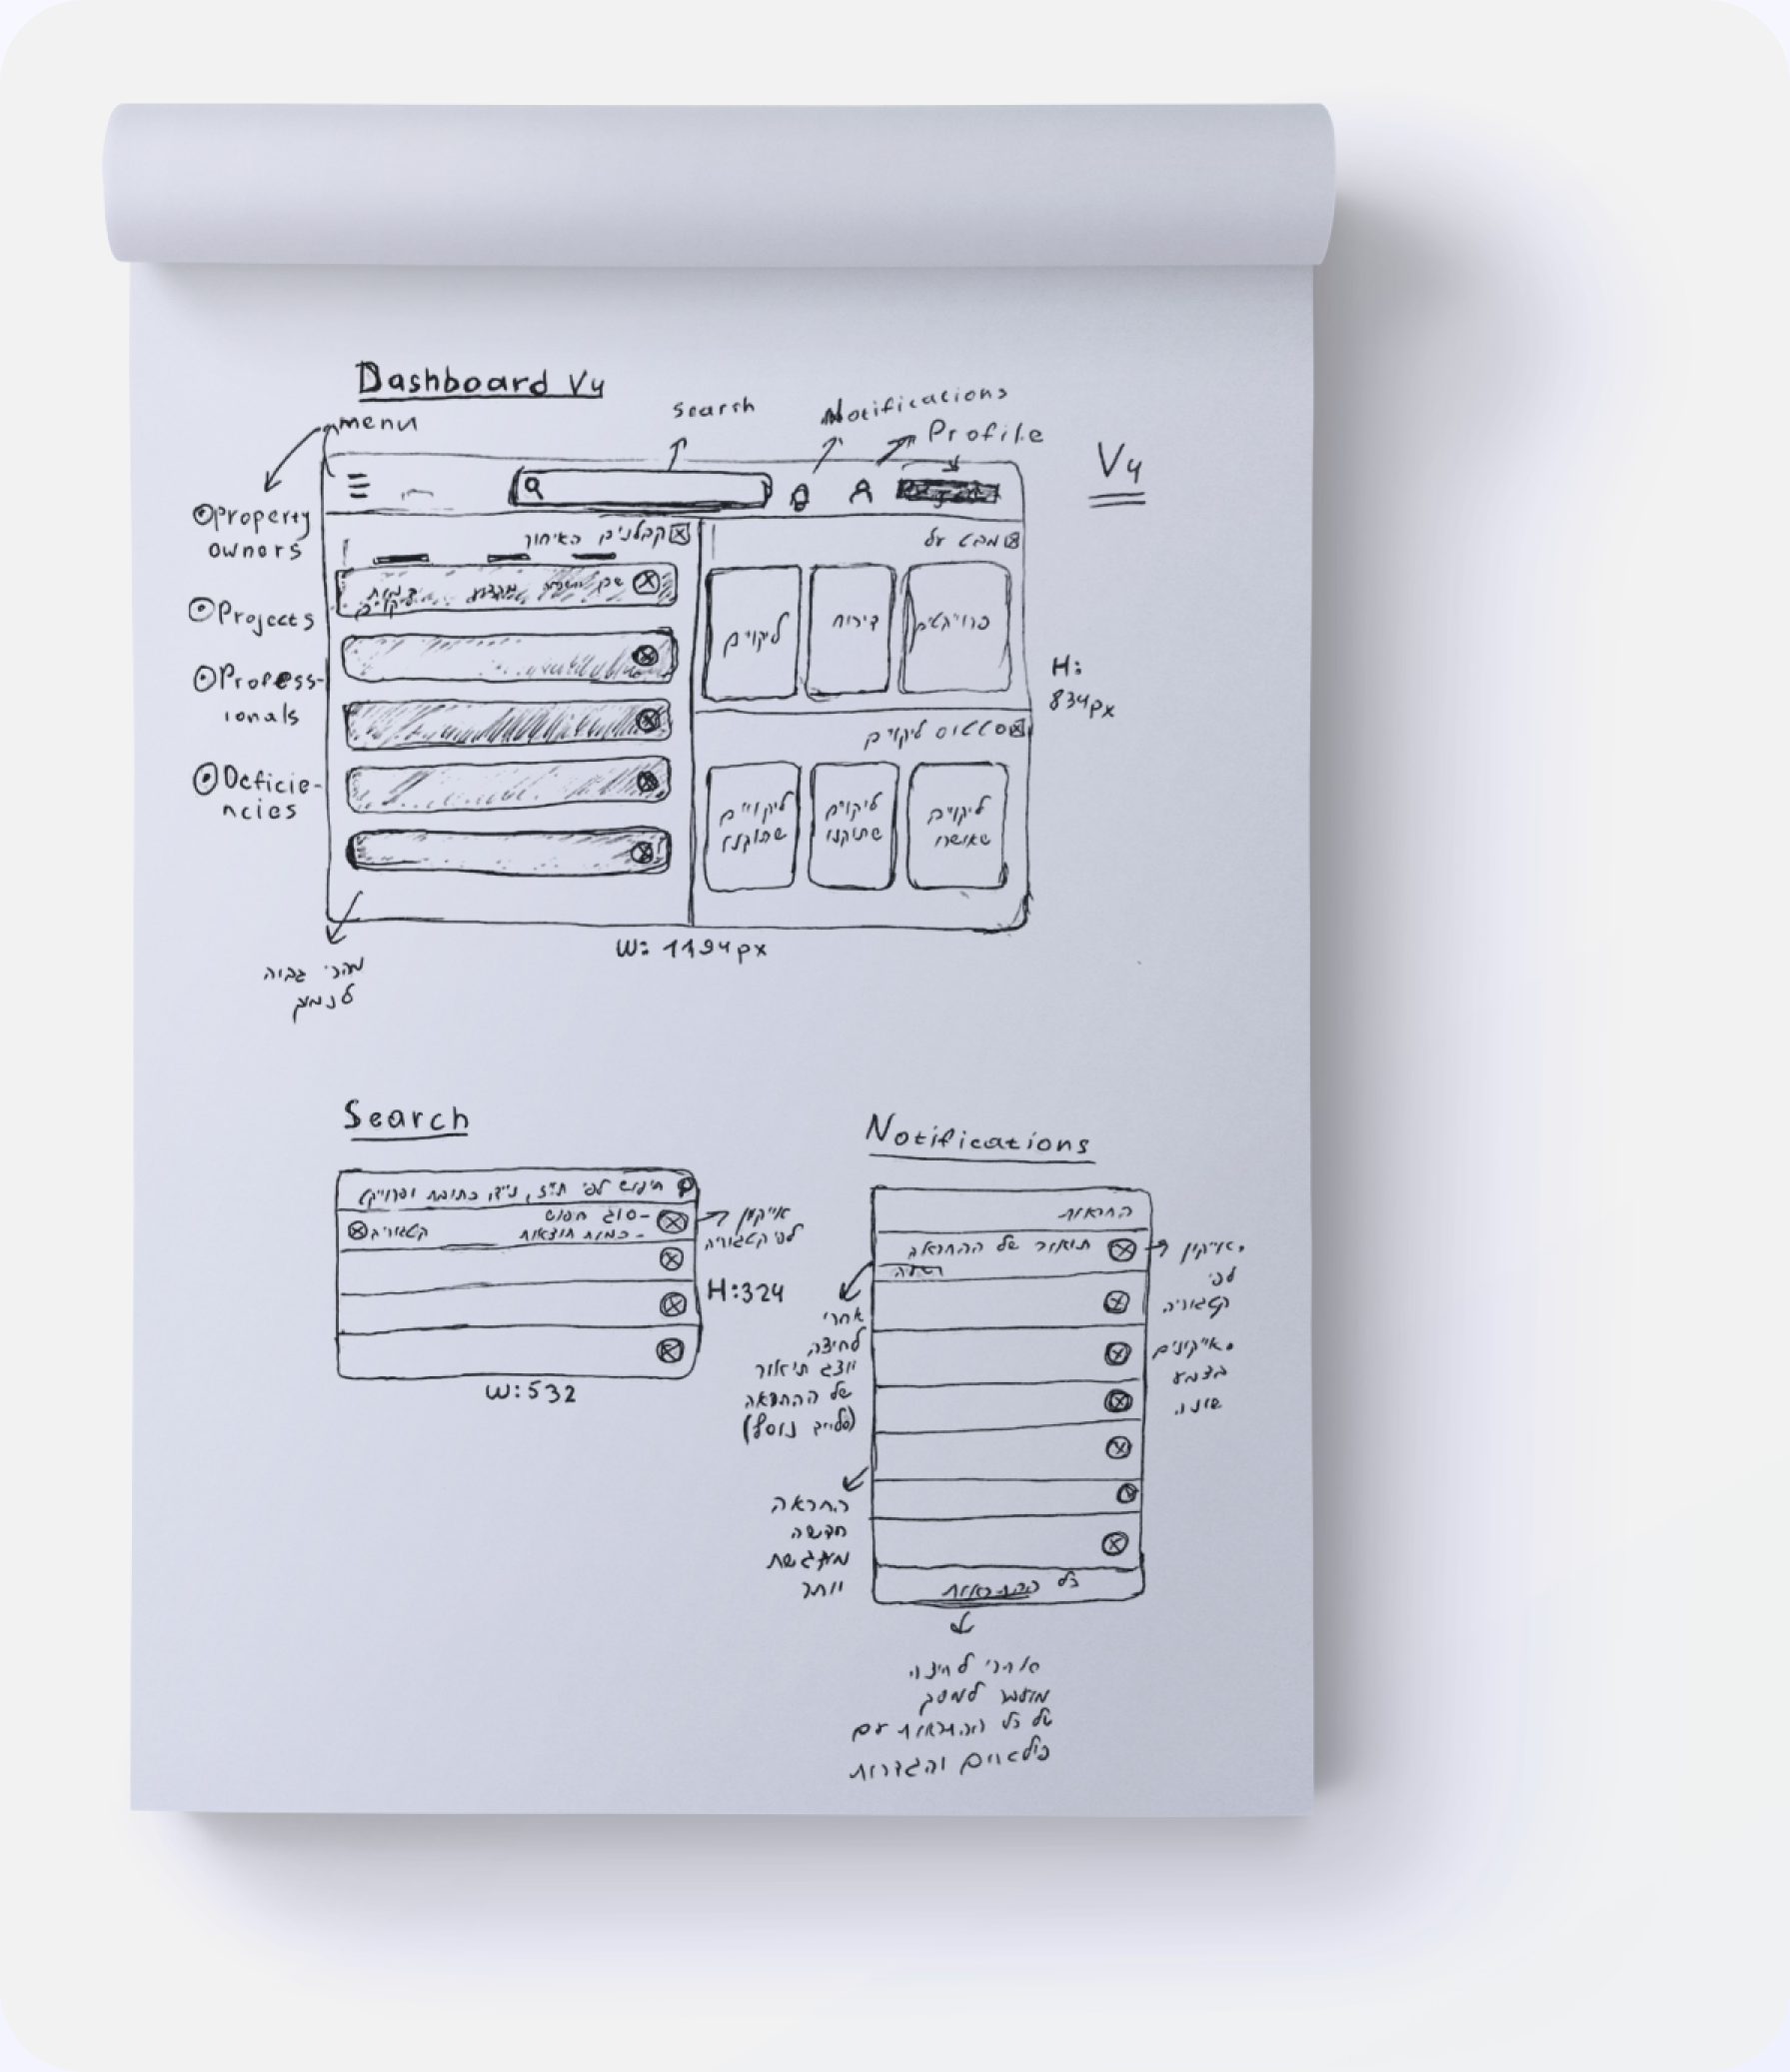 Dashboard V4
menu
Search
Notifications
Profile
V4
Property
owners
Projects
Profess-
ionals
Deficie-
ncies
קבלנים באיחור
מבט על
ליקויים
דירות
פרוייקטים
סטטוס ליקויים
ליקויים
שתוקנו
ליקויים
שתוקנו
ליקויים
שאושרו
H:
834px
W: 1194px
מהכי גבוה
לנמוך
Search
חיפוש לפי ת״ז, נייד, כתובת ופרוייקט
- סוג חיפוש
- כמות תוצאות
קטגוריה
אייקון
לפי קטגוריה
H:324
W:532
Notifications
התראות
תיאור של ההתראה
אייקון
לפי
קטגוריה
אייקונים
בצבע
שונה
אחרי
לחיצה
יוצג תיאור
של ההתראה
(סלייד נוסף)
התראה
חדשה
מודגשת
יותר
כל ההתראות
אחרי לחיצה
מועבר למסך
של כל ההתראות עם
פילטרים והגדרות